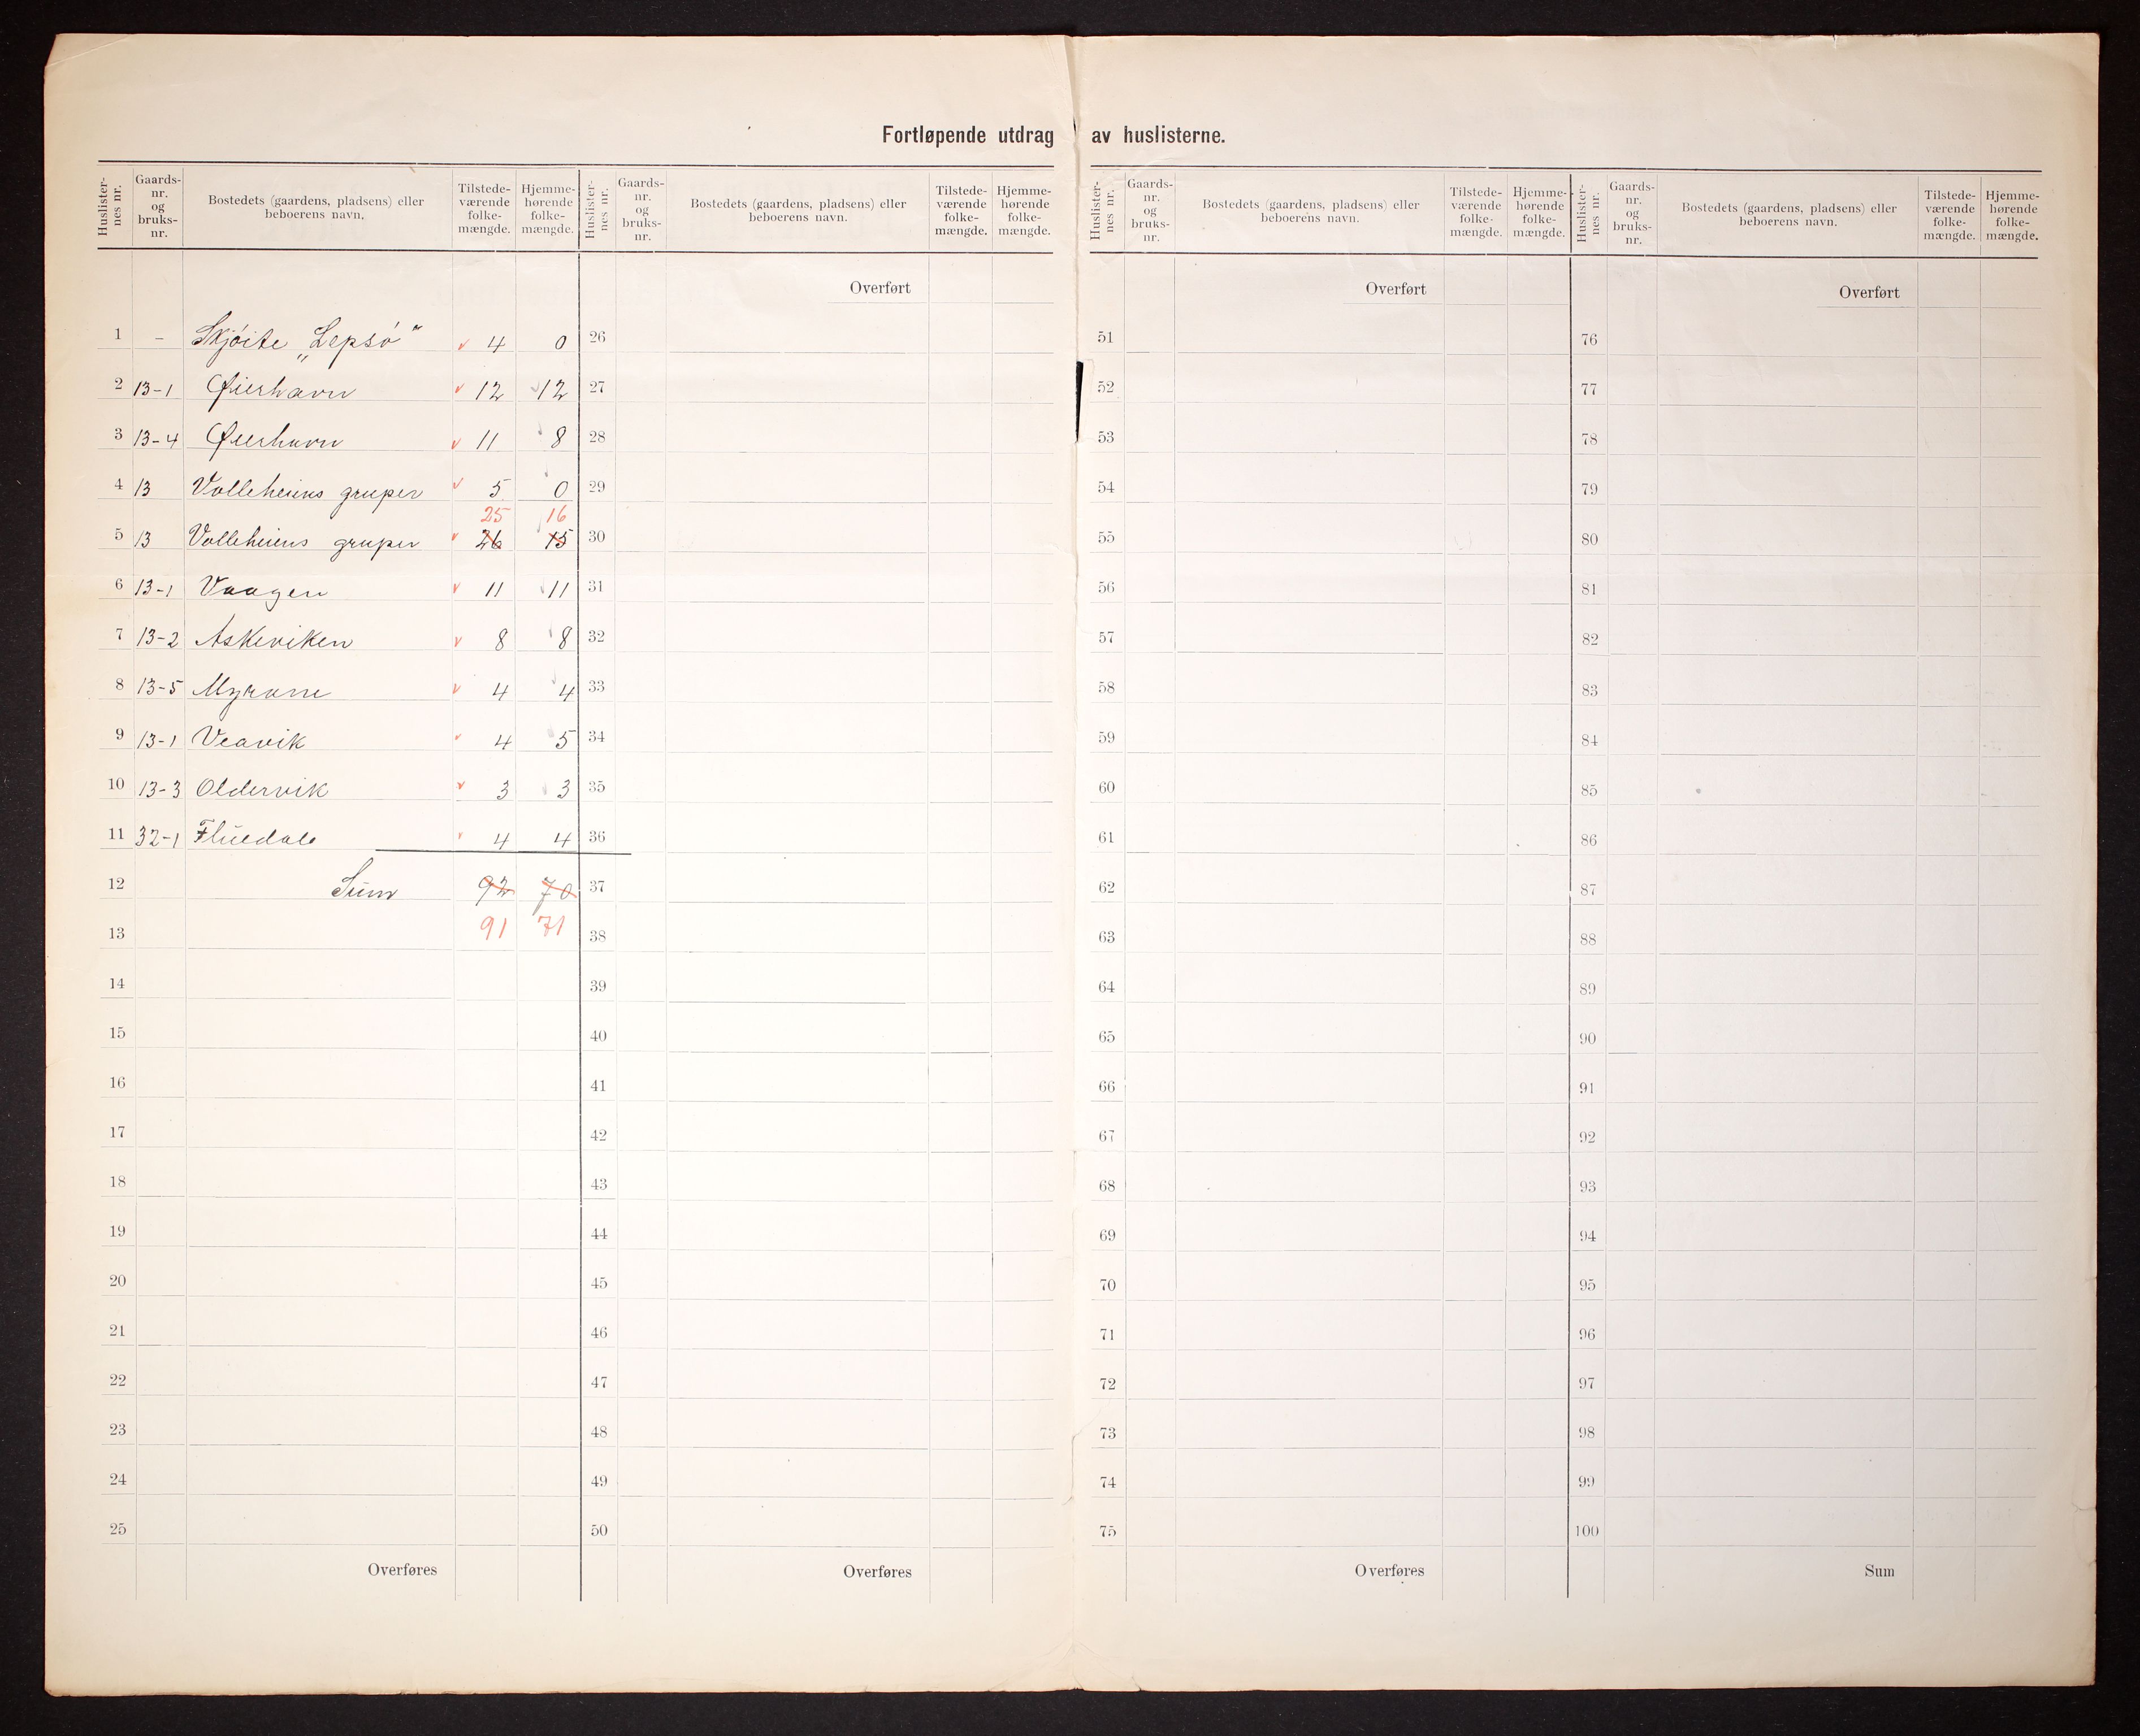 Fortløpende utdrag av huslisterne.
Huslister-nes nr. | Gaards-nr. og bruks-nr. | Bostedets (gaardens, pladsens) eller beboerens navn. | Tilstede-værende folke-mængde. | Hjemme-hørende folke-mængde.
1 – Skjöite „Lepsö" 4 0
2 13-1 Øierhavn 12 12
3 13-4 Øierhavn 11 8
4 13 Valleheiens gruper 5 0
25 16
5 13 Valleheiens gruper 26 15
6 13-1 Vaagen 11 11
7 13-2 Askeviken 8 8
8 13-5 Myrane 4 4
9 13-1 Veavik 4 5
10 13-3 Oldervik 3 3
11 32-1 Fluedale 4 4
12 Sum 92 70
13 91 71
14
15
16
17
18
19
20
21
22
23
24
25
Overføres
Huslister-nes nr. | Gaards-nr. og bruks-nr. | Bostedets (gaardens, pladsens) eller beboerens navn. | Tilstede-værende folke-mængde. | Hjemme-hørende folke-mængde.
Overført
26
27
28
29
30
31
32
33
34
35
36
37
38
39
40
41
42
43
44
45
46
47
48
49
50
Overføres
Huslister-nes nr. | Gaards-nr. og bruks-nr. | Bostedets (gaardens, pladsens) eller beboerens navn. | Tilstede-værende folke-mængde. | Hjemme-hørende folke-mængde.
Overført
51
52
53
54
55
56
57
58
59
60
61
62
63
64
65
66
67
68
69
70
71
72
73
74
75
Overføres
Huslister-nes nr. | Gaards-nr. og bruks-nr. | Bostedets (gaardens, pladsens) eller beboerens navn. | Tilstede-værende folke-mængde. | Hjemme-hørende folke-mængde.
Overført
76
77
78
79
80
81
82
83
84
85
86
87
88
89
90
91
92
93
94
95
96
97
98
99
100
Sum